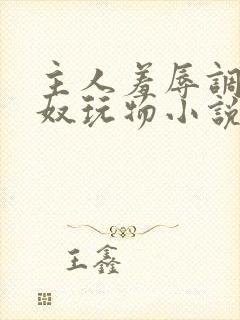 主人羞辱調
奴玩物小說
王鑫